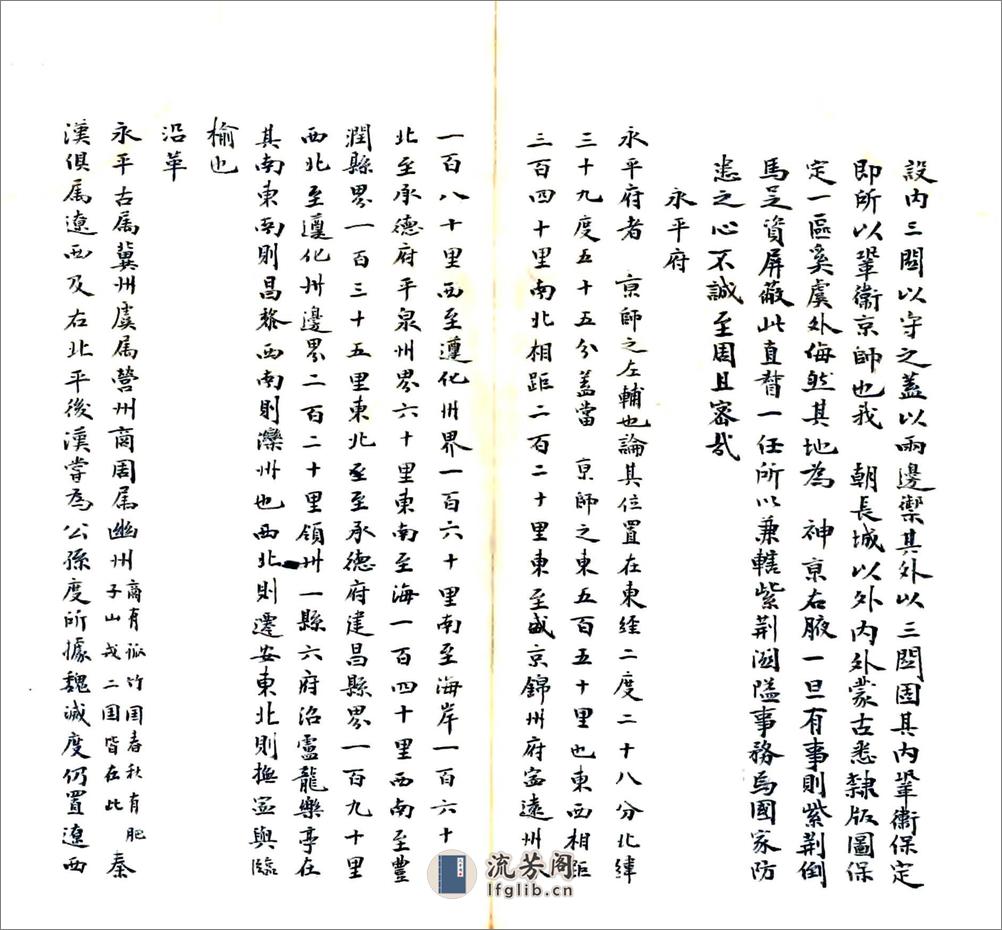 設内三関以守之蓋以兩邊禦其外以三関固其内鞏衛保定
即所以鞏衛京師也我　朝長城以外内外蒙古悉隸版圖保
定一區奚虞外侮然其地為　神京右腋一旦有事則紫荆倒
馬足資屏蔽此直督一任所以兼轄紫荆関隘事務爲國家防
患之心不誠至周且密哉
永平府
永平府者　京師之左輔也論其位置在東経二度二十八分北緯
三十九度五十五分蓋當　京師之東五百五十里也東西相距
三百四十里南北相距二百二十里東至盛京錦州府寧遠州
一百八十里西至遵化州界一百六十里南至海岸一百六十
北至承德府平泉州界六十里東南至海一百四十里西南至豐
潤縣界一百三十五里東北至至承德府建昌縣界一百九十里
西北至遵化州邊界二百二十里領州一縣六府治盧龍樂亭在
其南東南則昌黎西南則灤州也西北則遷安東北則撫寧與臨
榆也
沿革
永平古属冀州虞属營州商周属幽州商有孤竹国春秋有肥子山戎二国皆在此秦
漢俱属遼西及右北平後漢嘗為公孫度所據魏滅度仍置遼西
流芳阁
lfglib.cn